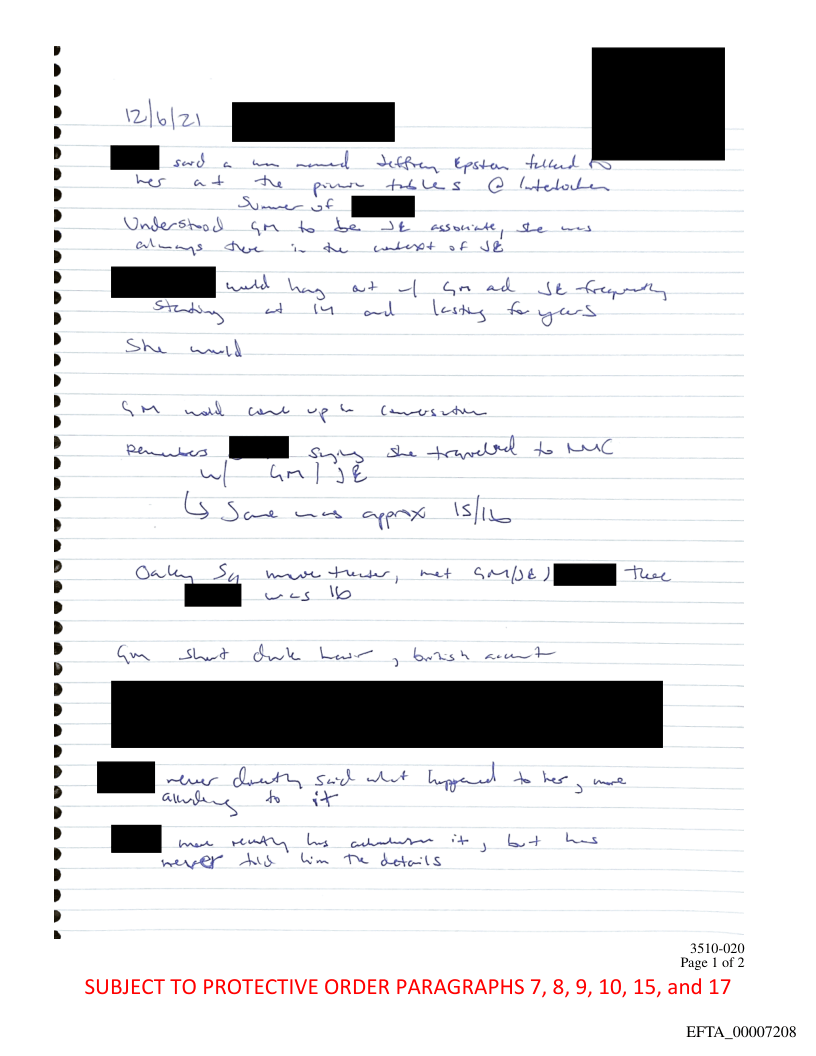 12/6/21
said a man named Jeffrey Epstein talked to
her at the picnic tables @ Interlochen
Summer of
Understood GM to be JE associate, she was
always there in the context of JE
would hang out w/ GM and JE frequently
starting at 14 and lasting for years
She would
GM would come up in conversation
Remembers saying she traveled to
w/ GM/JE
↳ Same was approx 15/16
Oakley Sq movie theater, met GM/JE/ there
was 16
GM short dark hair, british accent
never directly said what happened to her, more
alluding to it
more recently has it, but has
never told him the details
3510-020
Page 1 of 2
SUBJECT TO PROTECTIVE ORDER PARAGRAPHS 7, 8, 9, 10, 15, and 17
EFTA_00007208